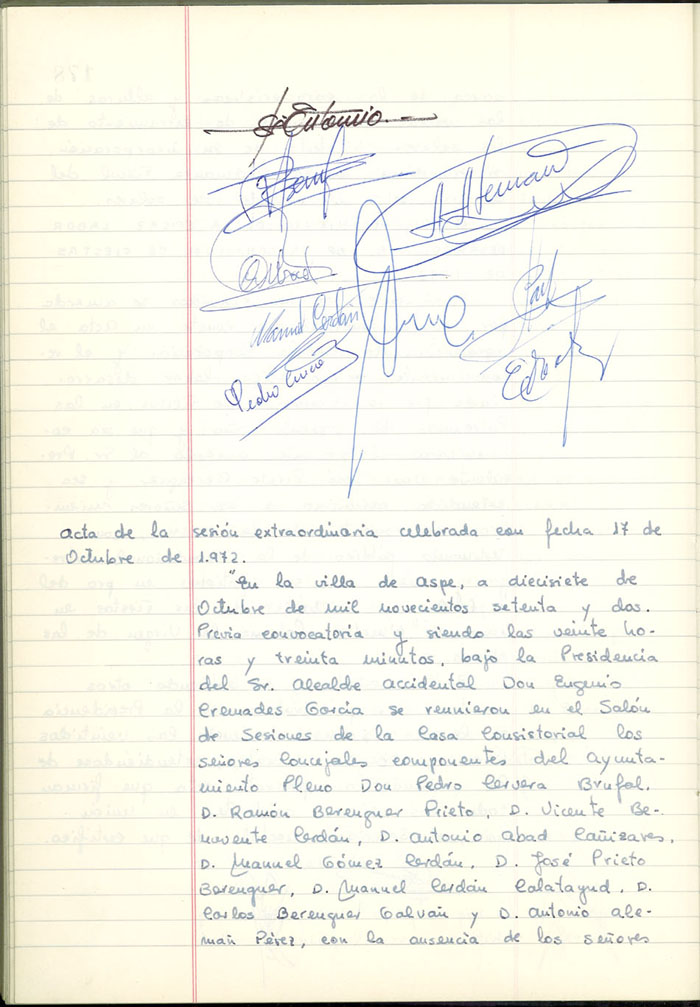 Manuel Cerdán
Pedro
acta de la sesión extraordinaria celebrada con fecha 17 de
Octubre de 1.972.
"En la villa de aspe, a diecisiete de
Octubre de mil novecientos setenta y dos.
Previa convocatoria y siendo las veinte ho-
ras y treinta minutos, bajo la Presidencia
del Sr. Alcalde accidental Don Eugenio
Cremades García se reunieron en el Salón
de Sesiones de la Casa Consistorial los
señores Concejales componentes del Ayunta-
miento Pleno Don Pedro Cervera Brufal,
D. Ramón Berenguer Prieto, D. Vicente Be-
novente Cerdán, D. Antonio Abad Cañizares,
D. Manuel Gómez Cerdán, D. José Prieto
Berenguer, D. Manuel Cerdán Calatayud, D.
Carlos Berenguer Galván y D. Antonio Ale-
mañ Pérez, con la ausencia de los señores